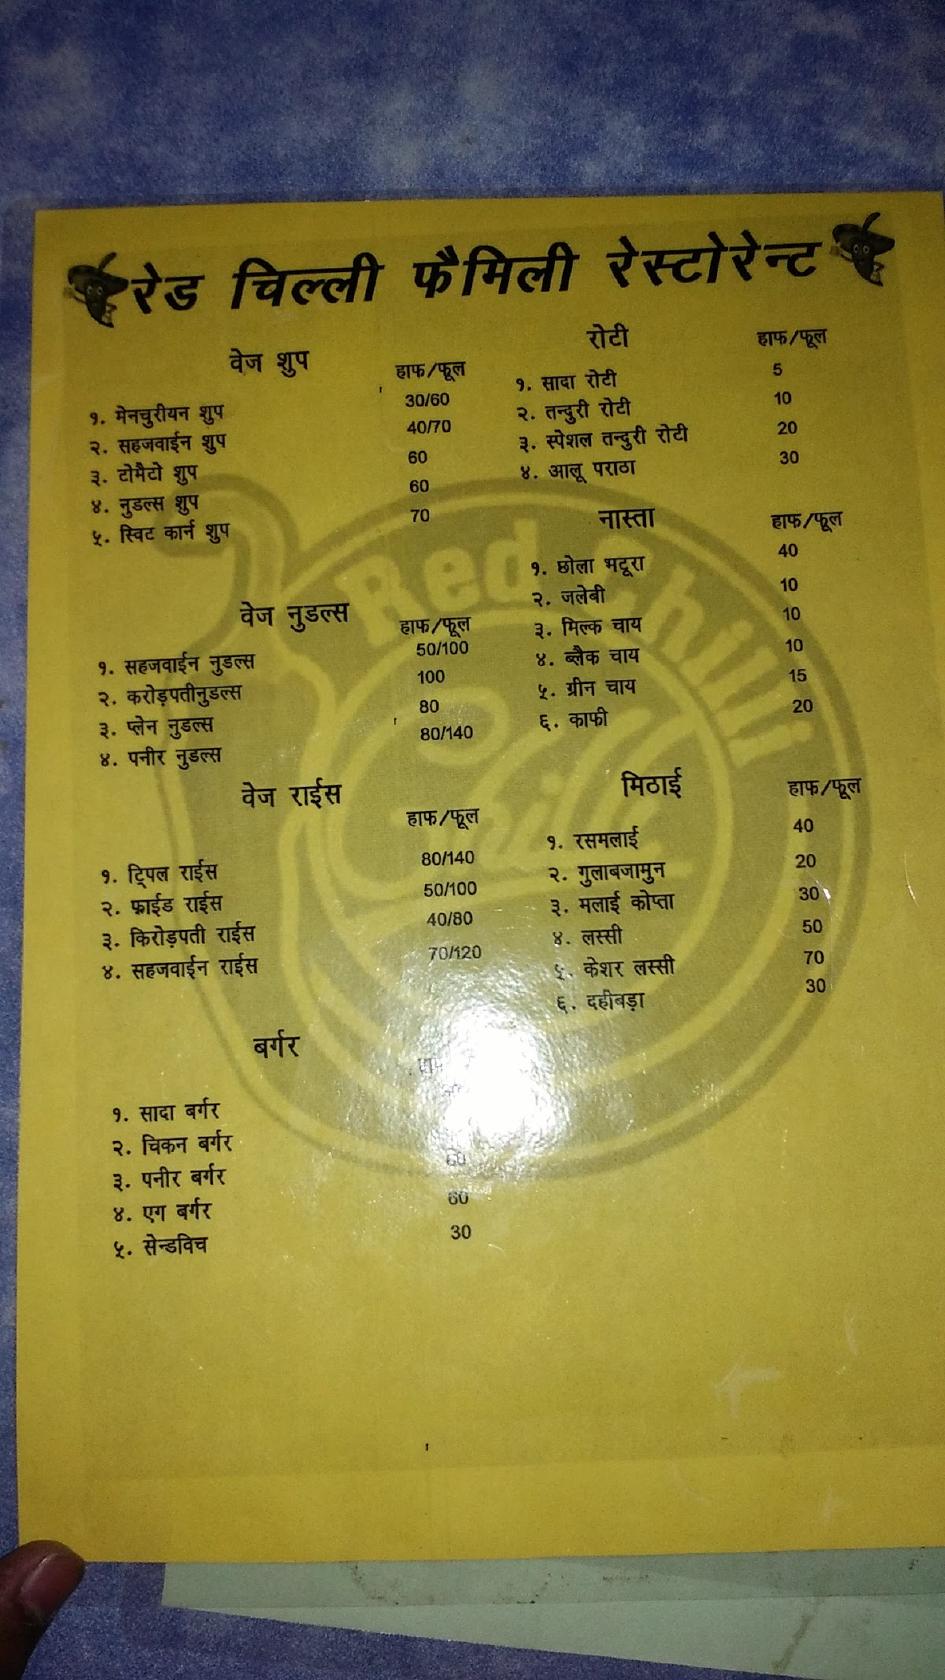 रेड चिल्ली फैमिली रेस्टोरेन्ट
वेज शुप
हाफ/फूल
१. मेनचुरीयन शुप 30/60
२. सहजवाईन शुप 40/70
३. टोमैटो शुप 60
४. नुडल्स शुप 60
५. स्विट कार्न शुप 70
वेज नुडल्स
हाफ/फूल
१. सहजवाईन नुडल्स 50/100
२. करोड़पतीनुडल्स 100
३. प्लेन नुडल्स 80
४. पनीर नुडल्स 80/140
वेज राईस
हाफ/फूल
१. ट्रिपल राईस 80/140
२. फ्राईड राईस 50/100
३. किरोड़पती राईस 40/80
४. सहजवाईन राईस 70/120
बर्गर
१. सादा बर्गर
२. चिकन बर्गर
३. पनीर बर्गर 60
४. एग बर्गर 60
५. सेन्डविच 30
रोटी
हाफ/फूल
१. सादा रोटी 5
२. तन्दुरी रोटी 10
३. स्पेशल तन्दुरी रोटी 20
४. आलू पराठा 30
नास्ता
हाफ/फूल
१. छोला भदूरा 40
२. जलेबी 10
३. मिल्क चाय 10
४. ब्लैक चाय 10
५. ग्रीन चाय 15
६. काफी 20
मिठाई
हाफ/फूल
१. रसमलाई 40
२. गुलाबजामुन 20
३. मलाई कोप्ता 30
४. लस्सी 50
५. केशर लस्सी 70
६. दहीबड़ा 30
Red Chilli
Chilli